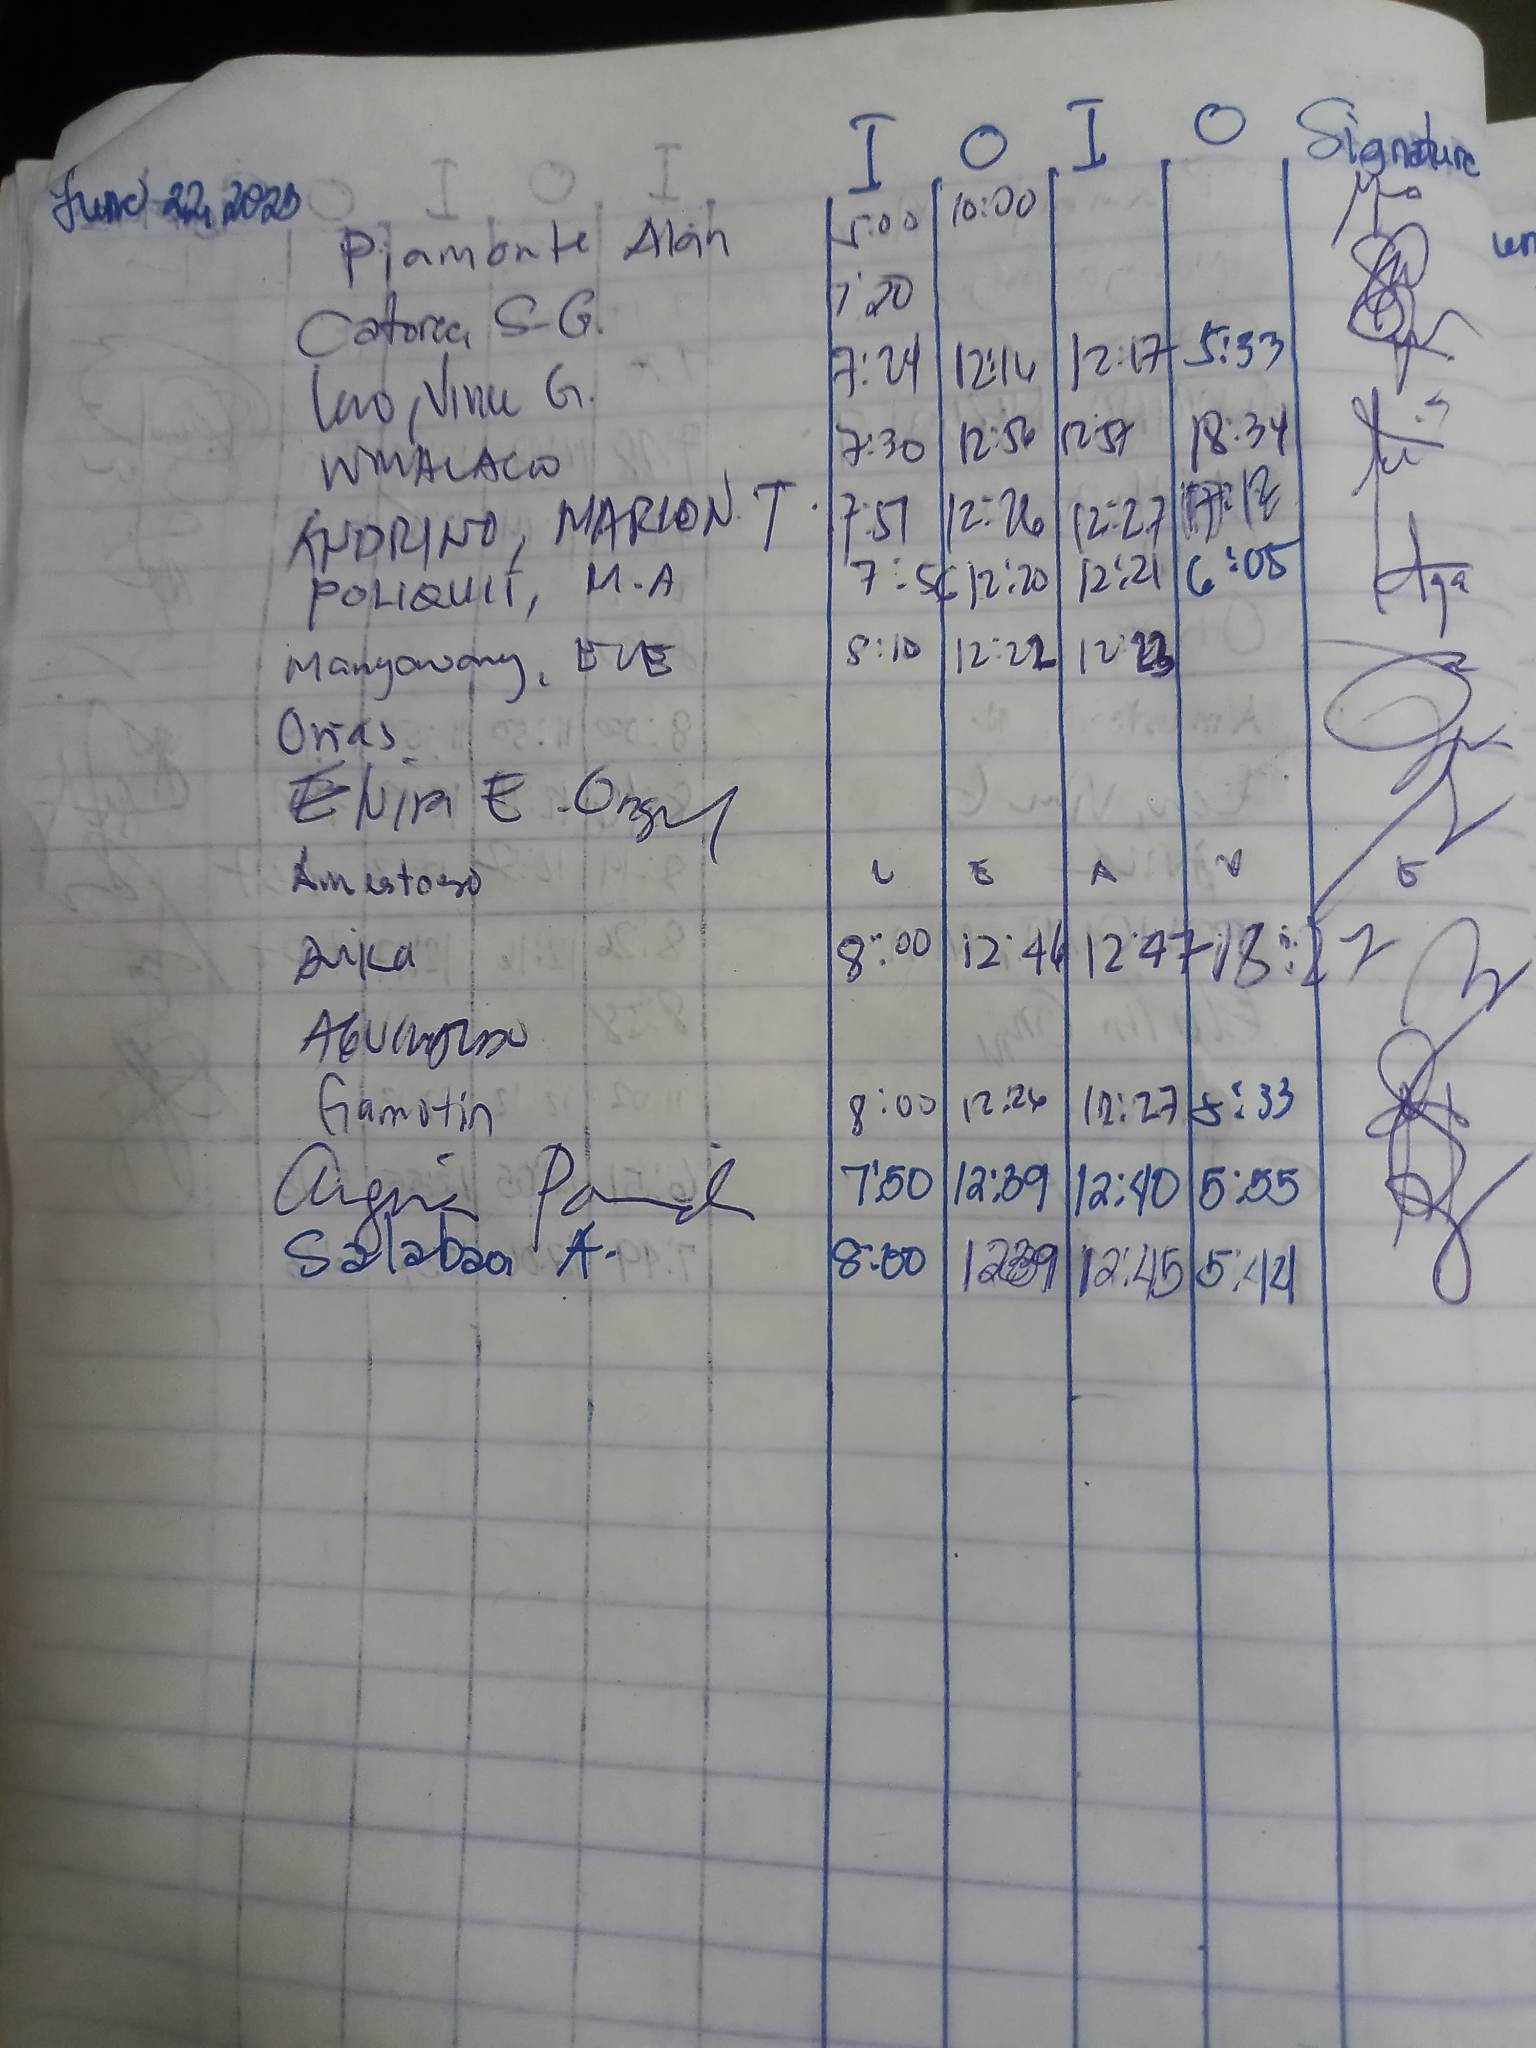 I O I O Signature
June 22, 2023
Piamonte Alan 5:00 10:00
Catorce S-G. 7:20
Lao, Vinu G. 7:24 12:16 12:17 5:33
7:30 12:56 12:57 18:34
ANDRINO, MARLON T. 7:51 12:26 12:27 17:12
POLIQUIT, M.A 7:56 12:20 12:21 6:05
Mangawang, EVE 8:10 12:22 12:23
Orias
Elvira E.
Amestoso L E A V E
Arika 8:00 12:46 12:47 18:27
Gamotin 8:00 12:26 12:27 5:33
7:50 12:39 12:40 5:55
Salabao A. 8:00 12:39 12:45 5:44